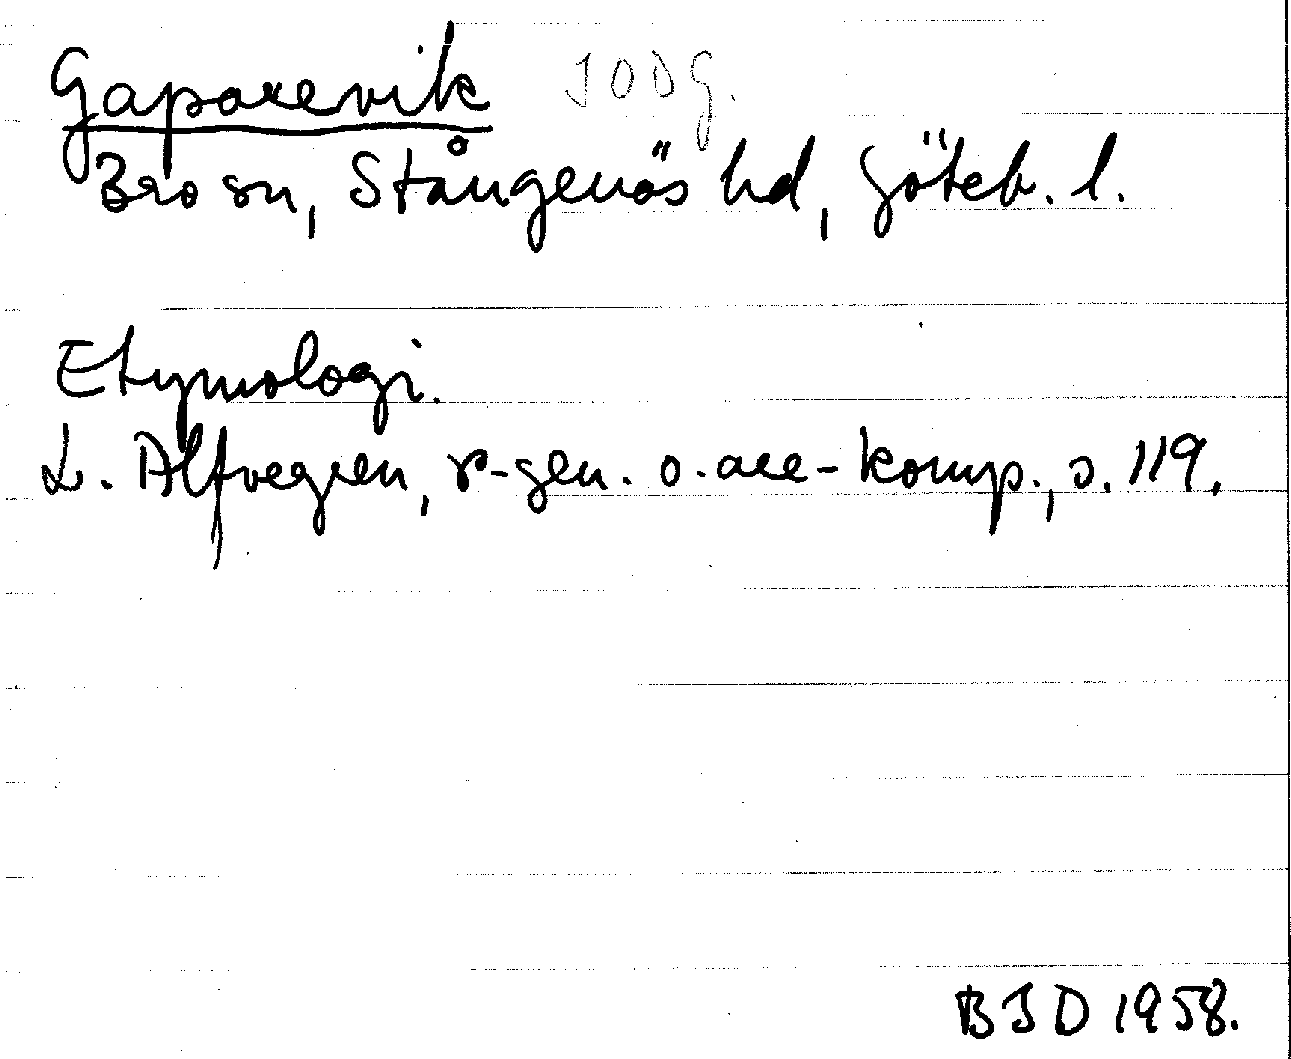 Gaparevik IODG.
Bro sn, Stångenäs hd, Göteb. l.
Etymologi.
L. Alfvegren, r-gen. o. are-komp., s. 119.
BID 1958.